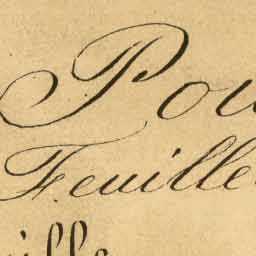 Pou
Feuille
ille